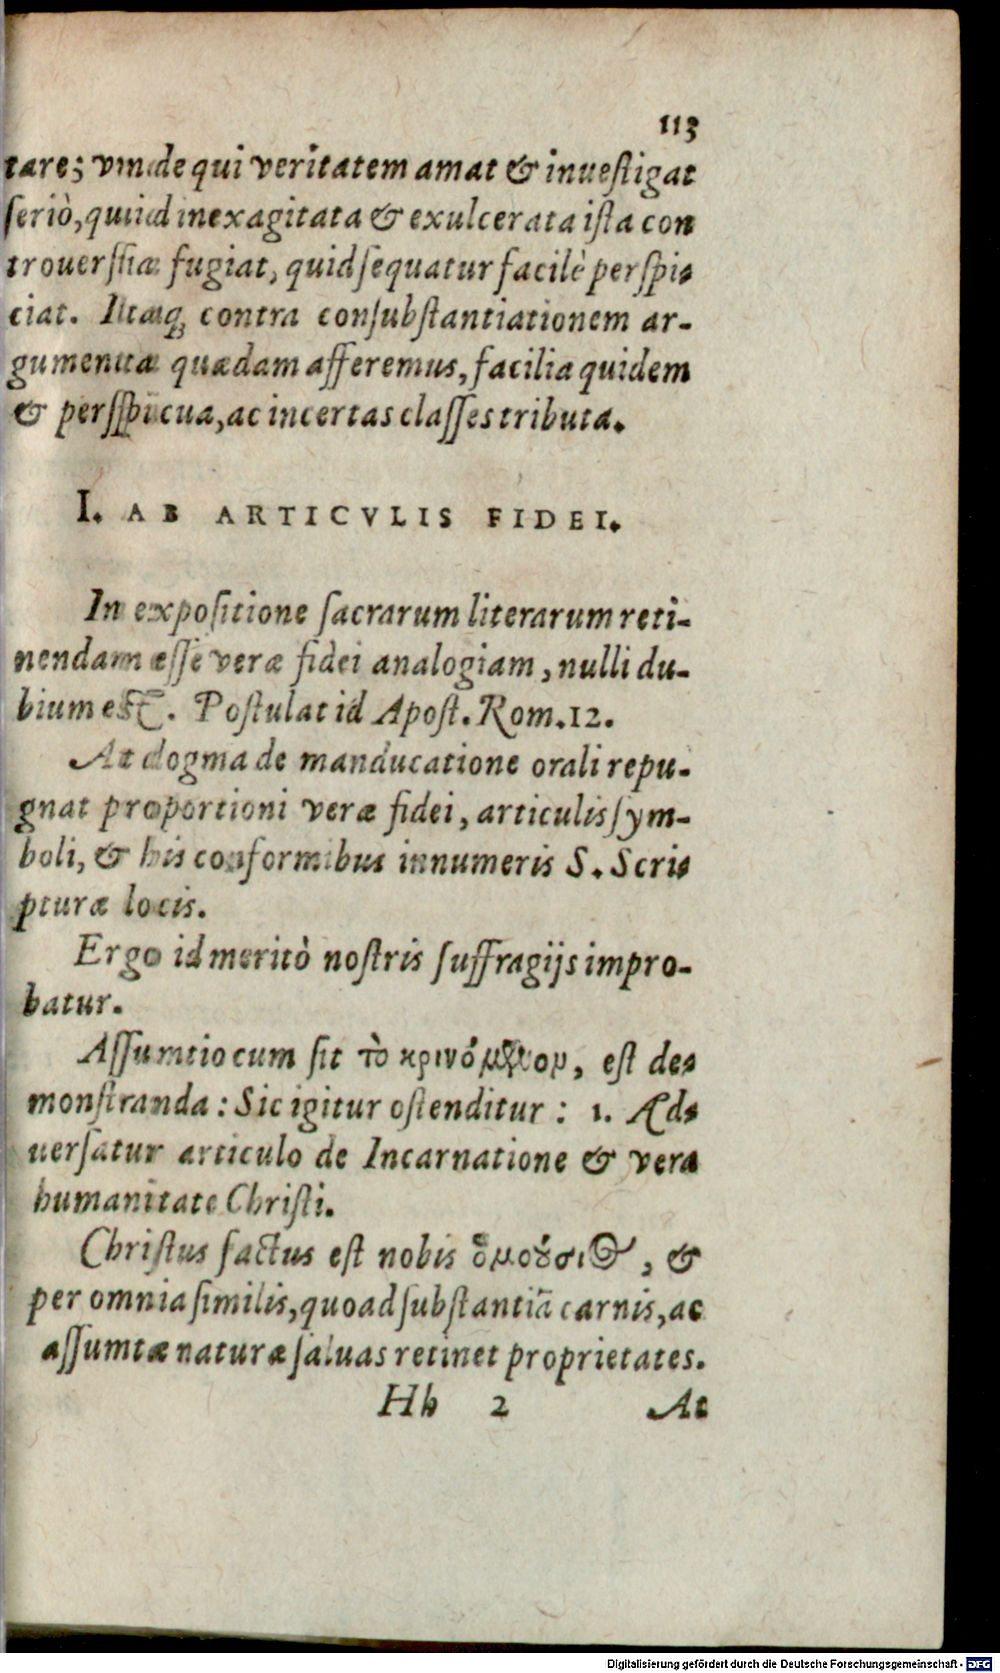 113
tare; vnde qui veritatem amat & inuestigat
seriò, quid in exagitata & exulcerata ista con
trouersia fugiat, quid sequatur facilè perspi-
ciat. Itaq; contra consubstantiationem ar-
gumenta quædam afferemus, facilia quidem
& perspicua, ac in certas classes tributa.
I. AB ARTICVLIS FIDEI.
In expositione sacrarum literarum reti-
nendam esse veræ fidei analogiam, nulli du-
bium est. Postulat id Apost. Rom. 12.
At dogma de manducatione orali repu-
gnat proportioni veræ fidei, articulis sym-
boli, & his conformibus innumeris S. Scri-
pturæ locis.
Ergo id meritò nostris suffragijs impro-
batur.
Assumtio cum sit τὸ κρινόμενον, est de-
monstranda: Sic igitur ostenditur: 1. Ad-
uersatur articulo de Incarnatione & vera
humanitate Christi.
Christus factus est nobis ὁμοούσιος, &
per omnia similis, quoad substantiā carnis, ac
assumtæ naturæ saluas retinet proprietates.
Hh 2 At
Digitalisierung gefördert durch die Deutsche Forschungsgemeinschaft - DFG